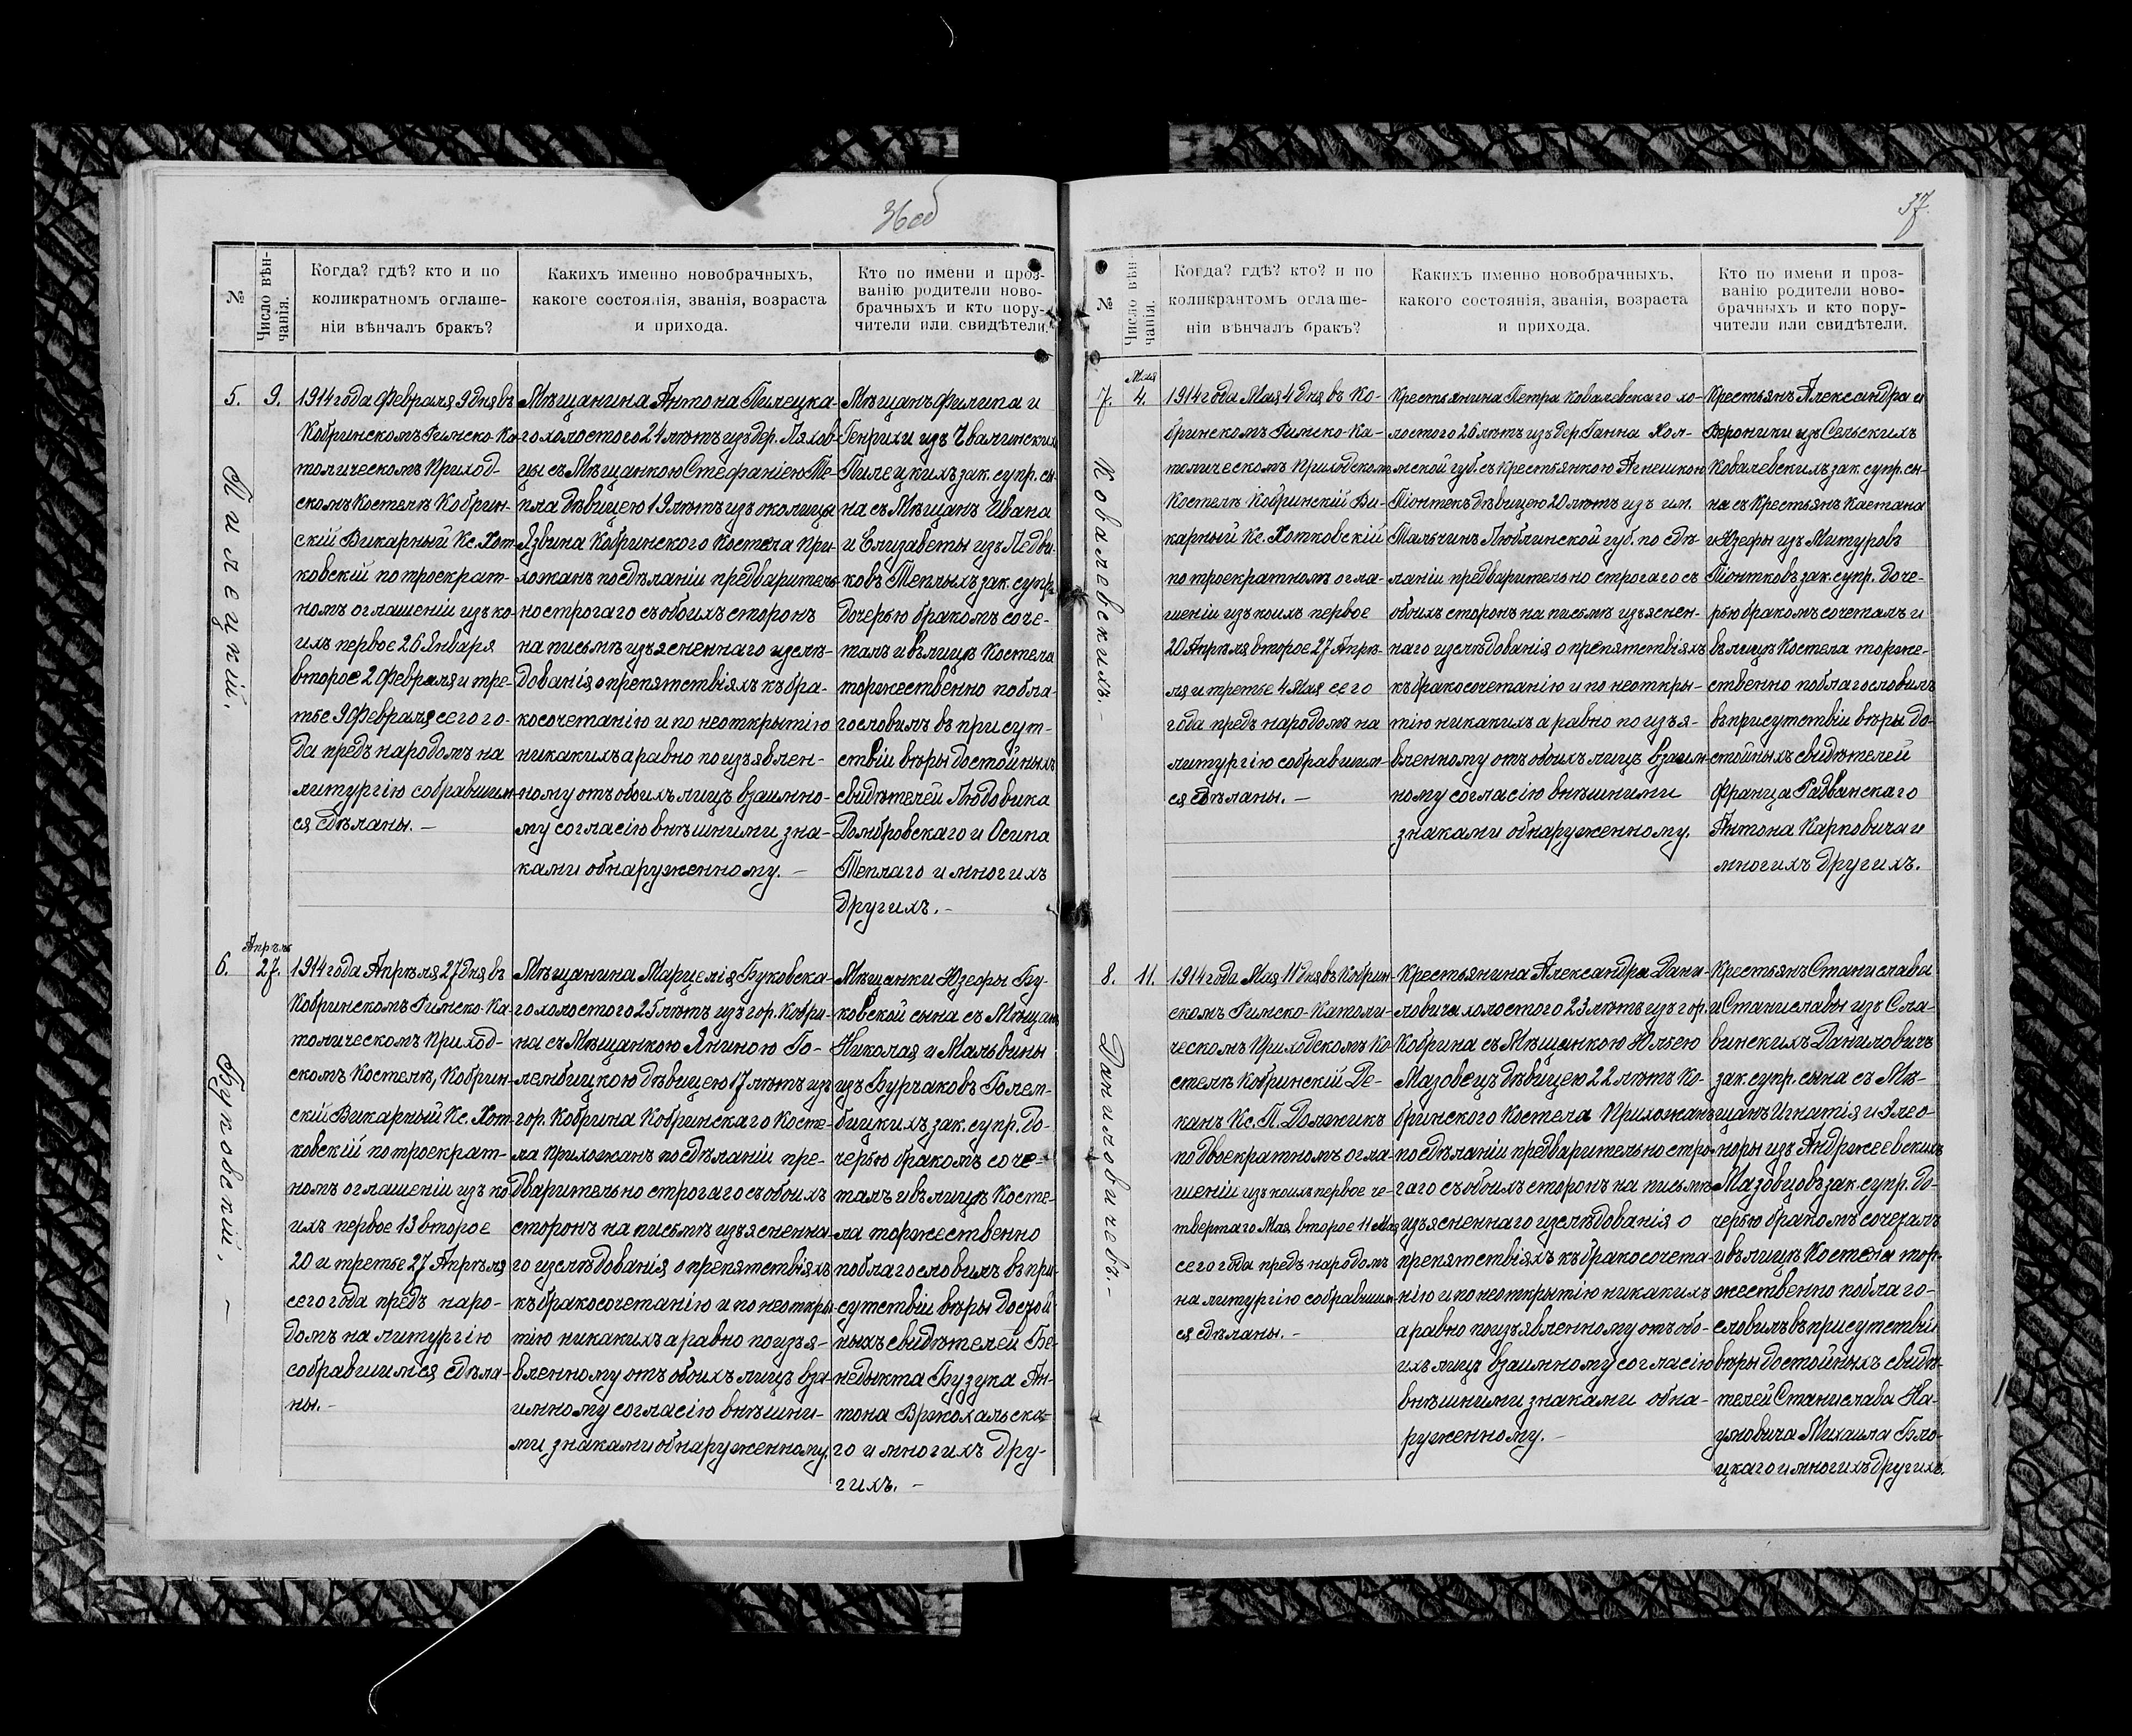 36 об
№
Число вѣн-
чанія.
Когда? гдѣ? кто и по
коликратномъ оглаше-
ніи вѣнчалъ бракъ?
Какихъ именно новобрачныхъ,
какого состоянія, званія, возраста
и прихода.
Кто по имени и проз-
ванію родители ново-
брачныхъ и кто пору-
чители или свидѣтели.
5.
9.
Пилецкій.
1914 года Февраля 9 дня въ
Кобринскомъ Римско-Ка-
толическомъ Приход-
скомъ Костелѣ Кобрин-
скій Викарный Кс. Хот-
ковскій по троекрат-
номъ оглашеніи изъ ко-
ихъ первое 26 Января
второе 2 Февраля и тре-
тье 9 Февраля сего го-
да предъ народомъ на
литургію собравшим-
ся сдѣланы. –
Мѣщанина Антона Пилецка-
го холостого 24 лѣтъ изъ дер. Ляхов-
цы съ Мѣщанкою Стефаніею Те-
пла дѣвицею 19 лѣтъ изъ околицы
Язвина Кобринского Костела При-
хожанъ по сдѣланіи предваритель-
но строгаго съ обоихъ сторонъ
на письмѣ изъясненнаго изслѣ-
дованія о препятствіяхъ къ бра-
косочетанію и по неоткрытію
никакихъ а равно по изъявлен-
ному отъ обоихъ лицъ взаимно-
му согласію внѣшними зна-
ками обнаруженному. –
Мѣщанъ Филипа и
Генрихи изъ Чвалинскихъ
Пилецкихъ зак. супр. сы-
на съ Мѣщанъ Ивана
и Елизаветы изъ Ледви-
ковъ Теплыхъ зак. супр.
дочерью бракомъ соче-
талъ и въ лицѣ Костела
торжественно побла-
гословилъ въ присут-
ствіи вѣры достойныхъ
свидѣтелей Людовика
Домбровскаго и Осипа
Теплаго и многихъ
другихъ. –
6.
Апрѣль
27.
Буковскій. –
1914 года Апрѣля 27 дня въ
Кобринскомъ Римско-Ка-
толическомъ Приход-
скомъ Костелѣ, Кобрин-
скій Викарный Кс. Хот-
ковскій по троекрат-
номъ оглашеніи изъ ко-
ихъ первое 13 второе
20 и третье 27 Апрѣля
сего года предъ наро-
домъ на литургію
собравшимся сдѣла-
ны. –
Мѣщанина Марцелія Буковска-
го холостого 25 лѣтъ изъ гор. Кобри-
на съ Мѣщанкою Яниною Го-
лембицкою дѣвицею 17 лѣтъ изъ
гор. Кобрина Кобринскаго Косте-
ла прихожанъ по сдѣланіи пре-
дварительно строгаго съ обоихъ
сторонъ на письмѣ изъясненна-
го изслѣдованія о препятствіяхъ
къ бракосочетанію и по неоткры-
тію никакихъ а равно по изъя-
вленному отъ обоихъ лицъ вза-
имному согласію внѣшни-
ми знаками обнаруженному.
Мѣщанки Юзефы Бу-
ковской сына съ Мѣщанъ
Николая и Мальвины
изъ Бурчаковъ Голем-
бицкихъ зак. супр. до-
черью бракомъ соче-
талъ и въ лицѣ Косте-
ла торжественно
поблагословилъ въ при-
сутствіи вѣры достой-
ныхъ свидѣтелей Бе-
недыкта Бузука Ан-
тона Вржохальска-
го и многихъ дру-
гихъ. –
37.
№
Число вѣн-
чанія.
Когда? гдѣ? кто? и по
коликрантомъ оглаше-
ніи вѣнчалъ бракъ?
Какихъ именно новобрачныхъ,
какого состоянія, званія, возраста
и прихода.
Кто по имени и проз-
ванію родители ново-
брачныхъ и кто пору-
чители или свидѣтели.
7.
Мая
4.
Ковалевскихъ. –
1914 года Мая 4 дня въ Ко-
бринскомъ Римско-Ка-
толическомъ Приходскомъ
Костелѣ Кобринскій Ви-
карный Кс. Хотковскій
по троекратномъ огла-
шеніи изъ коихъ первое
20 Апрѣля второе 27 Апрѣ-
ля и третье 4 Мая сего
года предъ народомъ на
литургію собравшим-
ся сдѣланы. –
Крестьянина Петра Ковалевскаго хо-
лостого 26 лѣтъ изъ дер. Ганна Хол-
мской губ. съ Крестьянкою Агнешкою
Піонтекъ дѣвицею 20 лѣтъ изъ им.
Тальчинъ Люблинской губ. по сдѣ-
ланіи предварительно строгаго съ
обоихъ сторонъ на письмѣ изъяснен-
наго изслѣдованія о препятствіяхъ
къ бракосочетанію и по неоткры-
тію никакихъ а равно по изъя-
вленному отъ обоихъ лицъ взаим-
ному согласію внѣшними
знаками обнаруженному.
Крестьянъ Александра и
Вероники изъ Сельскихъ
Ковалевскихъ зак. супр. сы-
на съ Крестьянъ Каетана
и Юзефы изъ Митуровъ
Піонтковъ зак. супр. доче-
рью бракомъ сочеталъ и
въ лицѣ Костела торже-
ственно поблагословилъ
въ присутствіи вѣры до-
стойныхъ свидѣтелей
Франца Радванскаго
Антона Карповича и
многихъ другихъ.
8.
11.
Даниловичевъ. –
1914 года Мая 11 дня въ Кобрин-
скомъ Римско-Католи-
ческомъ Приходскомъ Ко-
стелѣ Кобринскій Де-
канъ Кс. П. Должикъ
по двоекратномъ огла-
шеніи изъ коихъ первое че-
твертаго Мая второе 11 Мая
сего года предъ народомъ
на литургію собравшим-
ся сдѣланы. –
Крестьянина Александра Дани-
ловича холостого 23 лѣтъ изъ гор.
Кобрина съ Мѣщанкою Юлією
Мазовецъ дѣвицею 22 лѣтъ Ко-
бринского Костела Прихожанъ
по сдѣланіи предварительно стро-
гаго съ обоихъ сторонъ на письмѣ
изъясненнаго изслѣдованія о
препятствіяхъ къ бракосочета-
нію и по неоткрытію никакихъ
а равно по изъявленному отъ обо-
ихъ лицъ взаимному согласію
внѣшними знаками обна-
руженному. –
Крестьянъ Станислава
и Станиславы изъ Сла-
винскихъ Даниловичъ
зак. супр. сына съ Мѣ-
щанъ Игнатія и Элео-
норы изъ Андржеевскихъ
Мазовцовъ зак. супр. до-
черью бракомъ сочеталъ
и въ лицѣ Костела тор-
жественно поблаго-
словилъ въ присутствіи
вѣры достойныхъ свидѣ-
телей Станислава На-
умовича Михаила Бло-
цкаго и многихъ другихъ.